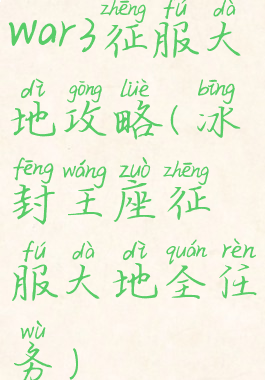 zhēng fú dà
war3征服大
dì gōng lüè bīng
地攻略(冰
fēng wáng zuò zhēng
封王座征
fú dà dì quán rèn
服大地全任
wù
务)